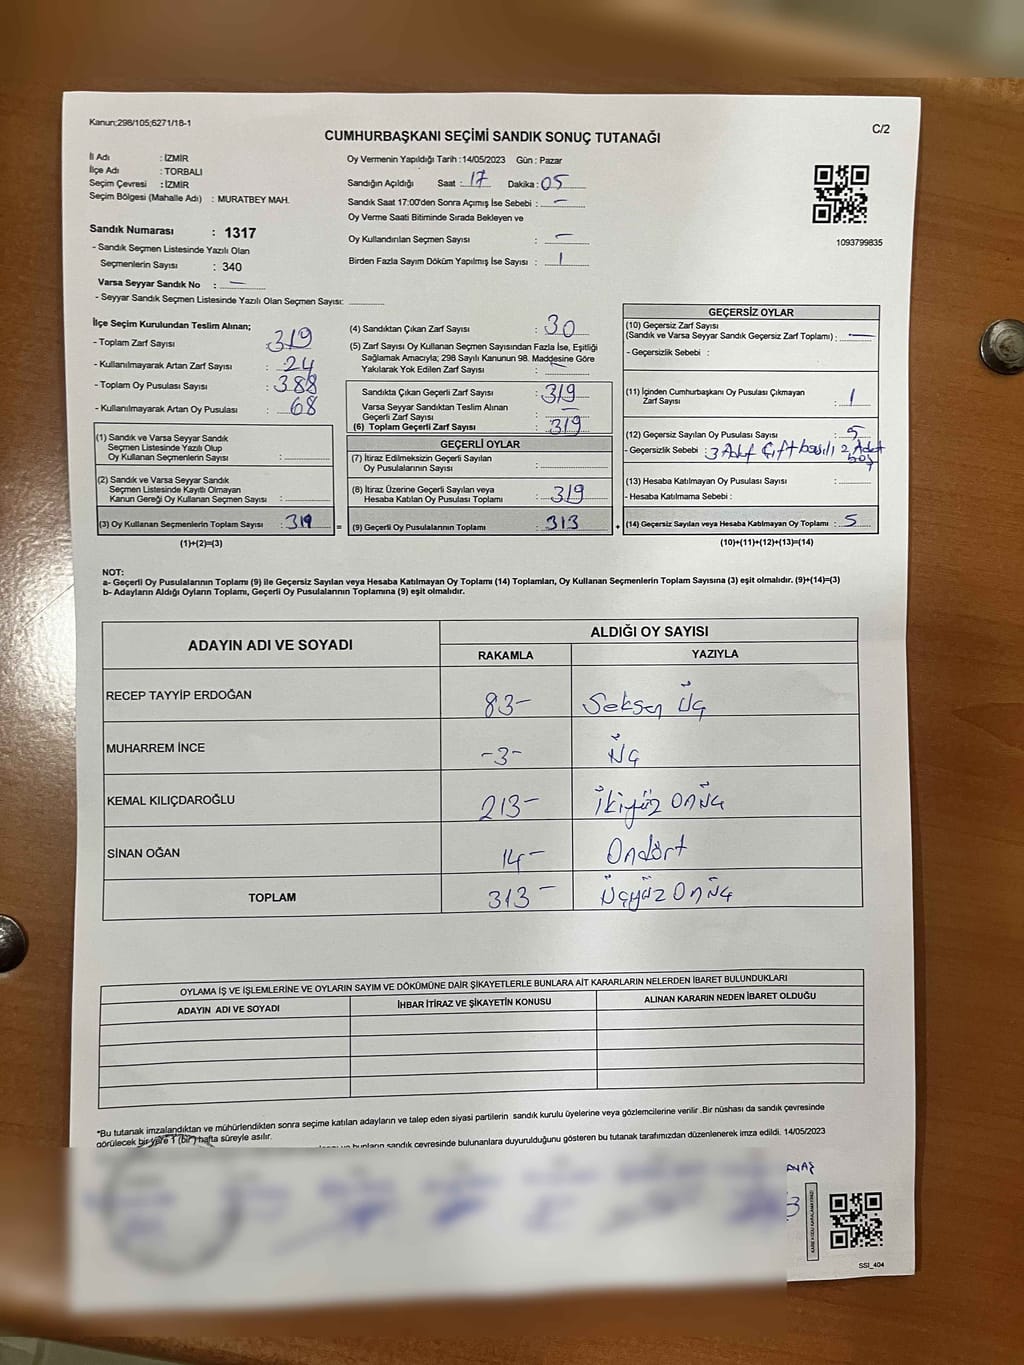 Kanun;298/105;6271/18-1
CUMHURBAŞKANI SEÇİMİ SANDIK SONUÇ TUTANAĞI
C/2
İl Adı : İZMİR
İlçe Adı : TORBALI
Seçim Çevresi : İZMİR
Seçim Bölgesi (Mahalle Adı) : MURATBEY MAH.
Sandık Numarası : 1317
- Sandık Seçmen Listesinde Yazılı Olan
Seçmenlerin Sayısı : 340
Varsa Seyyar Sandık No : —
- Seyyar Sandık Seçmen Listesinde Yazılı Olan Seçmen Sayısı:
Oy Vermenin Yapıldığı Tarih :14/05/2023 Gün : Pazar
Sandığın Açıldığı Saat : 17 Dakika : 05
Sandık Saat 17:00'den Sonra Açımış İse Sebebi : —
Oy Verme Saati Bitiminde Sırada Bekleyen ve
Oy Kullandırılan Seçmen Sayısı : —
Birden Fazla Sayım Döküm Yapılmış İse Sayısı : 1
1093799835
İlçe Seçim Kurulundan Teslim Alınan;
- Toplam Zarf Sayısı : 319
- Kullanılmayarak Artan Zarf Sayısı : 24
- Toplam Oy Pusulası Sayısı : 388
- Kullanılmayarak Artan Oy Pusulası : 68
(1) Sandık ve Varsa Seyyar Sandık
Seçmen Listesinde Yazılı Olup
Oy Kullanan Seçmenlerin Sayısı :
(2) Sandık ve Varsa Seyyar Sandık
Seçmen Listesinde Kayıtlı Olmayan
Kanun Gereği Oy Kullanan Seçmen Sayısı :
(3) Oy Kullanan Seçmenlerin Toplam Sayısı : 319 =
(1)+(2)=(3)
(4) Sandıktan Çıkan Zarf Sayısı : 30
(5) Zarf Sayısı Oy Kullanan Seçmen Sayısından Fazla İse, Eşitliği
Sağlamak Amacıyla; 298 Sayılı Kanunun 98. Maddesine Göre
Yakılarak Yok Edilen Zarf Sayısı : —
Sandıkta Çıkan Geçerli Zarf Sayısı : 319
Varsa Seyyar Sandıktan Teslim Alınan
Geçerli Zarf Sayısı : —
(6) Toplam Geçerli Zarf Sayısı : 319
GEÇERLİ OYLAR
(7) İtiraz Edilmeksizin Geçerli Sayılan
Oy Pusulalarının Sayısı :
(8) İtiraz Üzerine Geçerli Sayılan veya
Hesaba Katılan Oy Pusulası Sayısı : 319
(9) Geçerli Oy Pusulalarının Toplamı : 313 +
GEÇERSİZ OYLAR
(10) Geçersiz Zarf Sayısı
(Sandık ve Varsa Seyyar Sandık Geçersiz Zarf Toplamı) : —
- Geçersizlik Sebebi :
(11) İçinden Cumhurbaşkanı Oy Pusulası Çıkmayan
Zarf Sayısı : 1
(12) Geçersiz Sayılan Oy Pusulası Sayısı : 5
- Geçersizlik Sebebi : 3 Adet Çift basılı 2 Adet
boş
(13) Hesaba Katılmayan Oy Pusulası Sayısı :
- Hesaba Katılmama Sebebi :
(14) Geçersiz Sayılan veya Hesaba Katılmayan Oy Toplamı : 5
(10)+(11)+(12)+(13)=(14)
NOT:
a- Geçerli Oy Pusulalarının Toplamı (9) ile Geçersiz Sayılan veya Hesaba Katılmayan Oy Toplamı (14) Toplamları, Oy Kullanan Seçmenlerin Toplam Sayısına (3) eşit olmalıdır. (9)+(14)=(3)
b- Adayların Aldığı Oyların Toplamı, Geçerli Oy Pusulalarının Toplamına (9) eşit olmalıdır.
ADAYIN ADI VE SOYADI ALDIĞI OY SAYISI
RAKAMLA YAZIYLA
RECEP TAYYİP ERDOĞAN 83- Seksen Üç
MUHARREM İNCE -3- Üç
KEMAL KILIÇDAROĞLU 213- İkiyüz Onüç
SİNAN OĞAN 14- Ondört
TOPLAM 313- Üçyüz Onüç
OYLAMA İŞ VE İŞLEMLERİNE VE OYLARIN SAYIM VE DÖKÜMÜNE DAİR ŞİKAYETLERLE BUNLARA AİT KARARLARIN NELERDEN İBARET BULUNDUKLARI
ADAYIN ADI VE SOYADI İHBAR İTİRAZ VE ŞİKAYETİN KONUSU ALINAN KARARIN NEDEN İBARET OLDUĞU
*Bu tutanak imzalandıktan ve mühürlendikten sonra seçime katılan adayların ve talep eden siyasi partilerin sandık kurulu üyelerine veya gözlemcilerine verilir .Bir nüshası da sandık çevresinde
görülecek bir yere 1 (bir) hafta süreyle asılır.
bunların sandık çevresinde bulunanlara duyurulduğunu gösteren bu tutanak tarafımızdan düzenlenerek imza edildi. 14/05/2023
3
KARE KODU KARALAMAYINIZ!
SSI_404